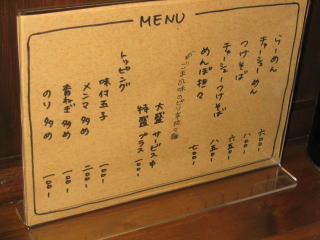 MENU
らーめん 六〇〇-
チャーシューめん 八〇〇-
つけそば 六五〇-
チャーシューつけそば 八五〇-
めんぼ担々 七〇〇-
大盛 サービス中
特盛 プラス 一〇〇-
トッピング
味付玉子 一〇〇-
メンマ 多め 二〇〇-
青ねぎ 多め 一〇〇-
のり 多め 一〇〇-